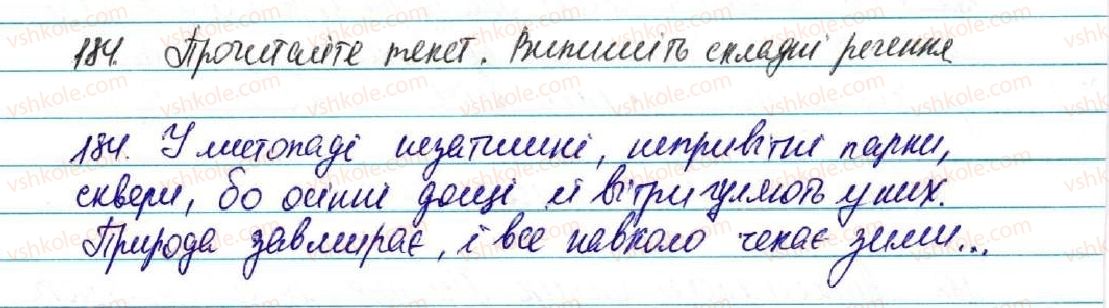 184. Прочитайте текст. Випишіть складні речення
184. У листопаді незатишні, непривітні парки,
сквери, бо осінні дощі й вітри гуляють у них.
Природа завмирає, і все навколо чекає зими...